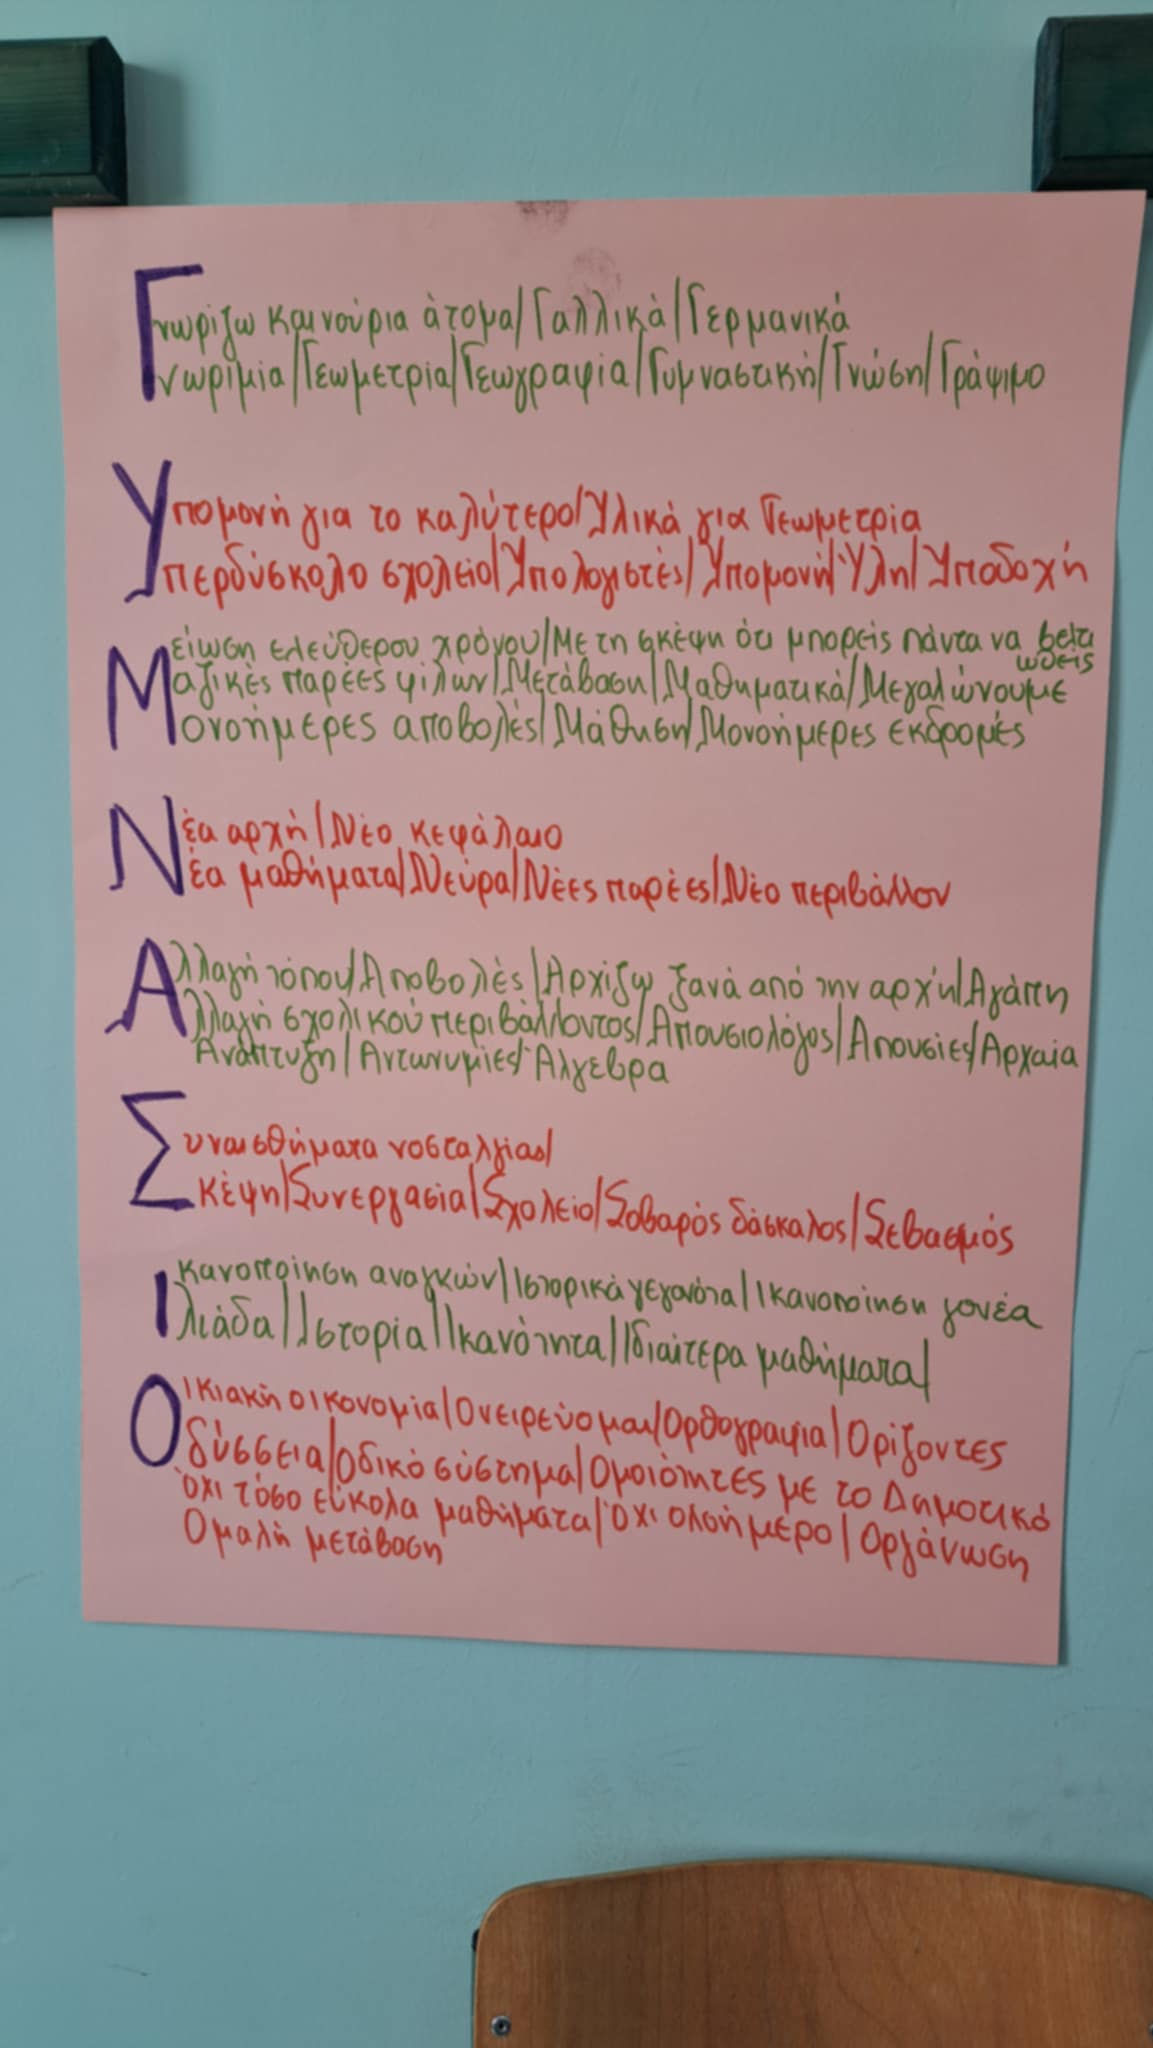 Γνωρίζω καινούρια άτομα/Γαλλικά/Γερμανικά
νωριμία/Γεωμετρία/Γεωγραφία/Γυμναστική/Γνώση/Γράψιμο
Υπομονή για το καλύτερο/Υλικά για Γεωμετρία
περδύσκολο σχολείο/Υπολογιστές/Υπομονή/Ύλη/Υποδοχή
Μείωση ελεύθερου χρόνου/Με τη σκέψη ότι μπορείς πάντα να βελτιωθείς
αζικές παρέες φίλων/Μετάβαση/Μαθηματικά/Μεγαλώνουμε
ονοήμερες αποβολές/Μάθηση/Μονοήμερες εκδρομές
Νέα αρχή/Νέο κεφάλαιο
έα μαθήματα/Νεύρα/Νέες παρέες/Νέο περιβάλλον
Αλλαγή τόπου/Αποβολές/Αρχίζω ξανά από την αρχή/Αγάπη
λλαγή σχολικού περιβάλλοντος/Απουσιολόγος/Απουσίες/Αρχαία
Ανάπτυξη/Αντωνυμίες/Άλγεβρα
Συναισθήματα νοσταλγίας/
κέψη/Συνεργασία/Σχολείο/Σοβαρός δάσκαλος/Σεβασμός
Ικανοποίηση αναγκών/Ιστορικά γεγονότα/Ικανοποίηση γονέα
λιάδα/Ιστορία/Ικανότητα/Ιδιαίτερα μαθήματα/
Οικιακή οικονομία/Ονειρεύομαι/Ορθογραφία/Ορίζοντες
δύσσεια/Οδικό σύστημα/Ομοιότητες με το Δημοτικό
Όχι τόσο εύκολα μαθήματα/Όχι ολοήμερο/Οργάνωση
Ομαλή μετάβαση